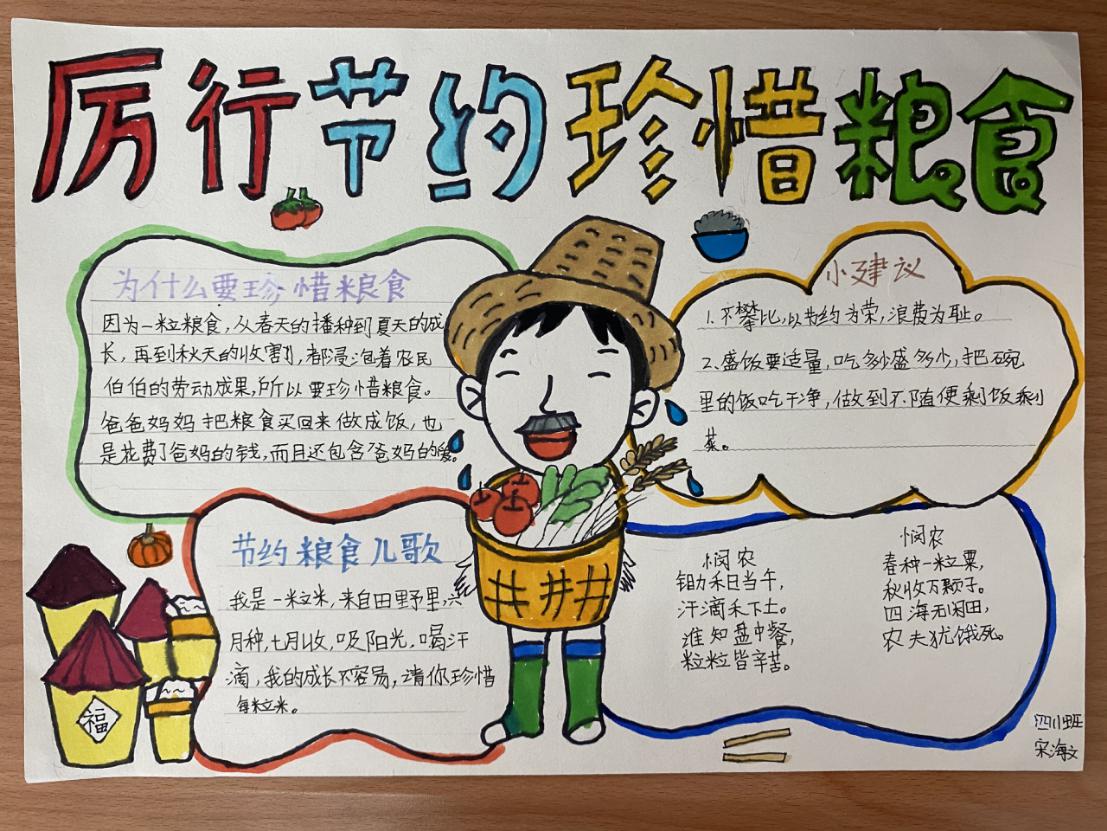 厉行节约珍惜粮食
为什么要珍惜粮食
因为一粒粮食,从春天的播种到夏天的成
长,再到秋天的收割,都浸泡着农民
伯伯的劳动成果,所以要珍惜粮食。
爸爸妈妈把粮食买回来做成饭,也
是花费了爸妈的钱,而且还包含爸妈的爱。
小建议
1.不攀比,以节约为荣,浪费为耻。
2.盛饭要适量,吃多少盛多少,把碗
里的饭吃干净,做到不随便剩饭剩
菜。
节约粮食儿歌
我是一粒米,来自田野里,六
月种,七月收,吸阳光,喝汗
滴,我的成长不容易,请你珍惜
每粒米。
悯农
锄禾日当午,
汗滴禾下土。
谁知盘中餐,
粒粒皆辛苦。
悯农
春种一粒粟,
秋收万颗子。
四海无闲田,
农夫犹饿死。
福
四川班
宋海文